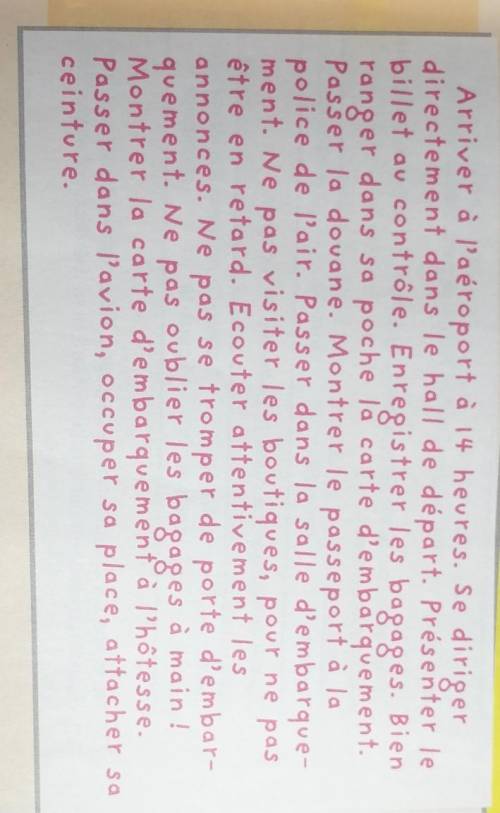 Arriver à l'aéroport à 14 heures. Se diriger
directement dans le hall de départ. Présenter le
billet au contrôle. Enregistrer les bagages. Bien
ranger dans sa poche la carte d'embarquement.
Passer la douane. Montrer le passeport à la
police de l'air. Passer dans la salle d'embarque-
ment. Ne pas visiter les boutiques, pour ne pas
être en retard. Ecouter attentivement les
annonces. Ne pas se tromper de porte d'embar-
quement. Ne pas oublier les bagages à main !
Montrer la carte d'embarquement à l'hôtesse.
Passer dans l'avion, occuper sa place, attacher sa
ceinture.